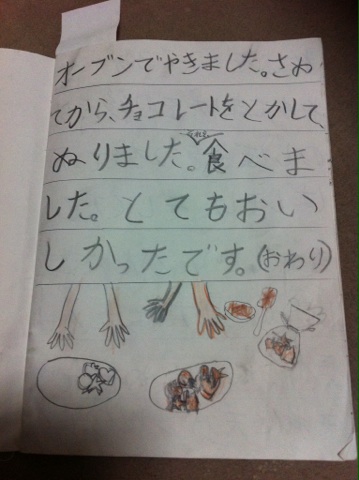 オーブンでやきました。さめ
てから、チョコレートをとかして、
ぬりました。それを食べま
した。とてもおい
しかったです。(おわり)